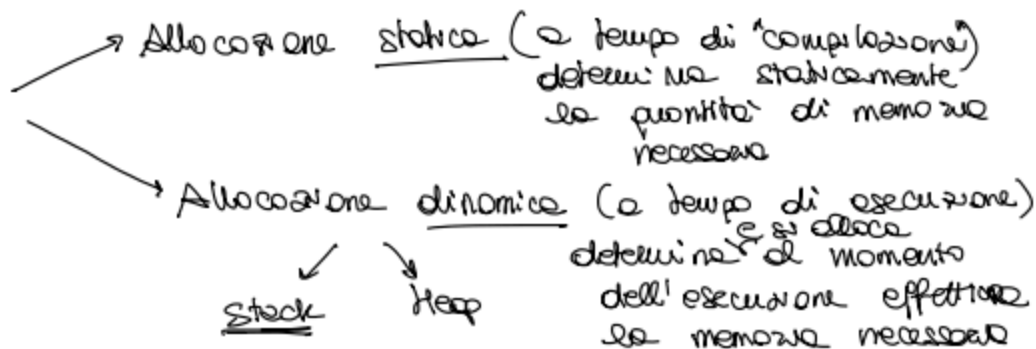 Allocazione statica (a tempo di "compilazione")
determina staticamente
la quantità di memoria
necessaria
Allocazione dinamica (a tempo di esecuzione)
e si alloca
determina al momento
dell'esecuzione effettiva
la memoria necessaria
Stack Heap